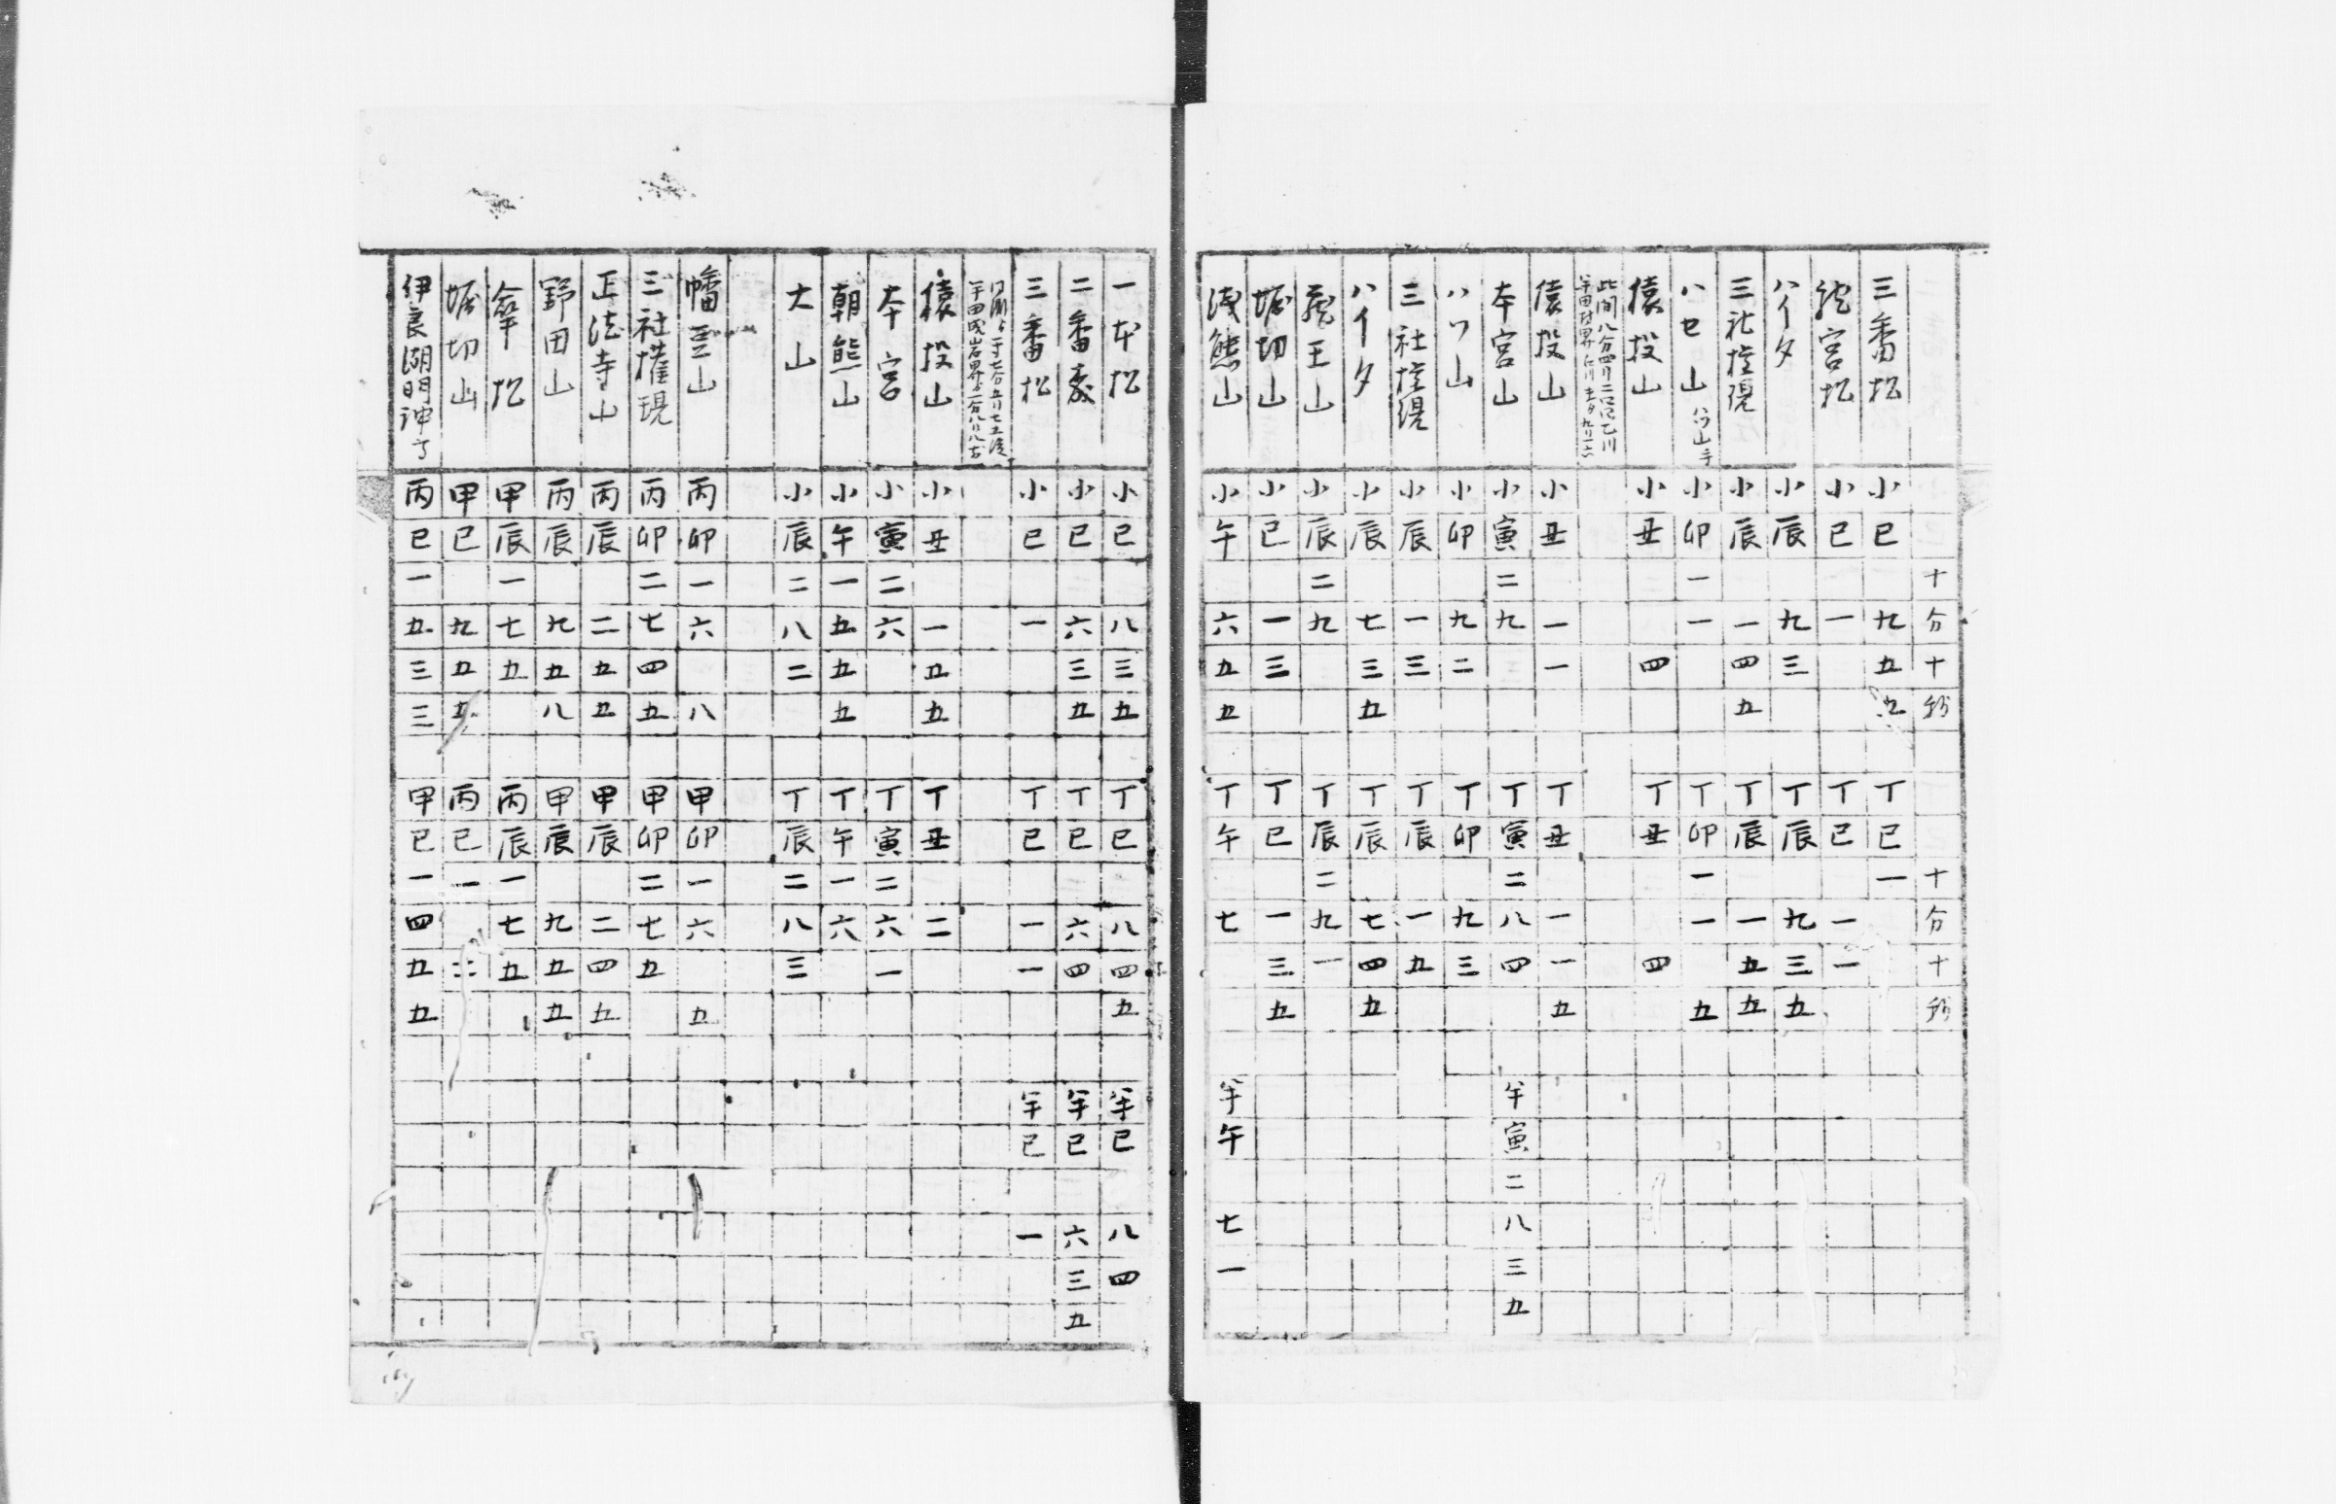 十分十秒 十分十秒
三番松 小巳 九五 丁巳一
宮松 小巳 一 丁巳 一一
ハイタ 小辰 九三 丁辰 九三五
三社権現 小辰 一四五 丁辰 一五五
ハセ山 小卯一一 丁卯一一 五
猿投山 小丑 四 丁丑 四
猿投山 小丑 一一 丁丑 一一五
本宮山 小寅二九 丁寅二八四 半寅二八三五
ハツ山 小卯 九二 丁卯 九三
三社権現 小辰 一三 丁辰 一五
ハイタ 小辰 七三五 丁辰 七四五
王山 小辰二九 丁辰二九一
堀切山 小巳 一三 丁巳 一三五
浅熊山 小午 六五五 丁午 七 半午 七一
一本松 小巳 八三五 丁巳 八四五 半巳 八四
二番 小巳 六三五 丁巳 六四 半巳 六三五
三番松 小巳 一 丁巳 一一 半巳 一
猿投山 小丑 一五五 丁丑 二
本宮 小寅二六 丁寅二六一
朝熊山 小午一五五五 丁午一六
大山 小辰二八二 丁辰二八三
幡豆山 丙卯一六 八 甲卯一六 五
三社権現 丙卯二七四五 甲卯二七五
正法寺山 丙辰 二五五 甲辰 二四五
野田山 丙辰 九五八 甲辰 九五五
傘松 甲辰一七五 丙辰一七五
堀切山 甲巳 九五五 丙巳一 二
伊良湖明神 丙巳一五三三 甲巳一四五五